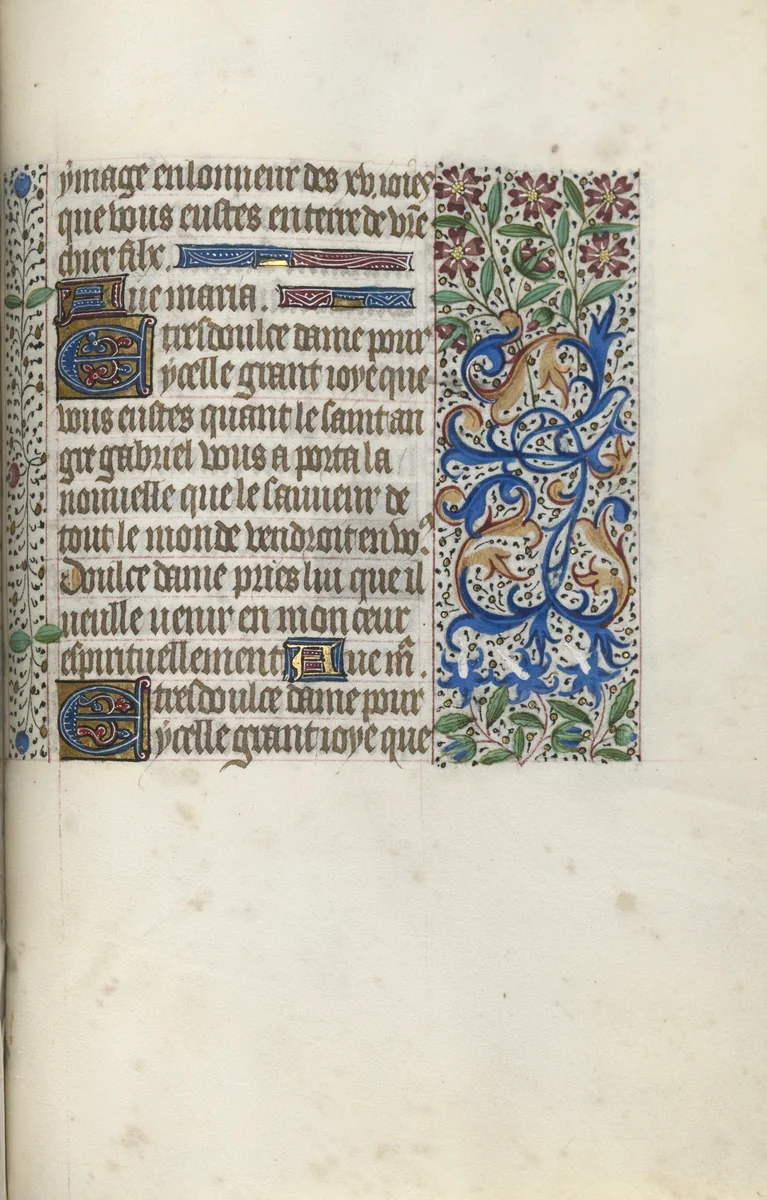 ymage en lonneur des xv. ioies
que vous eustes en terre de vr̄e
chier filx.
Aue maria.
E tresdoulce dame pour
ycelle grant ioye que
vous eustes quant le saint an
gre gabriel vous a porta la
nouuelle que le sauueur de
tout le monde vendroit en vo9.
Doulce dame pries lui que il
ueulle uenir en mon cœur
espirituellement Aue m̄a.
E tresdoulce dame pour
ycelle grant ioye que